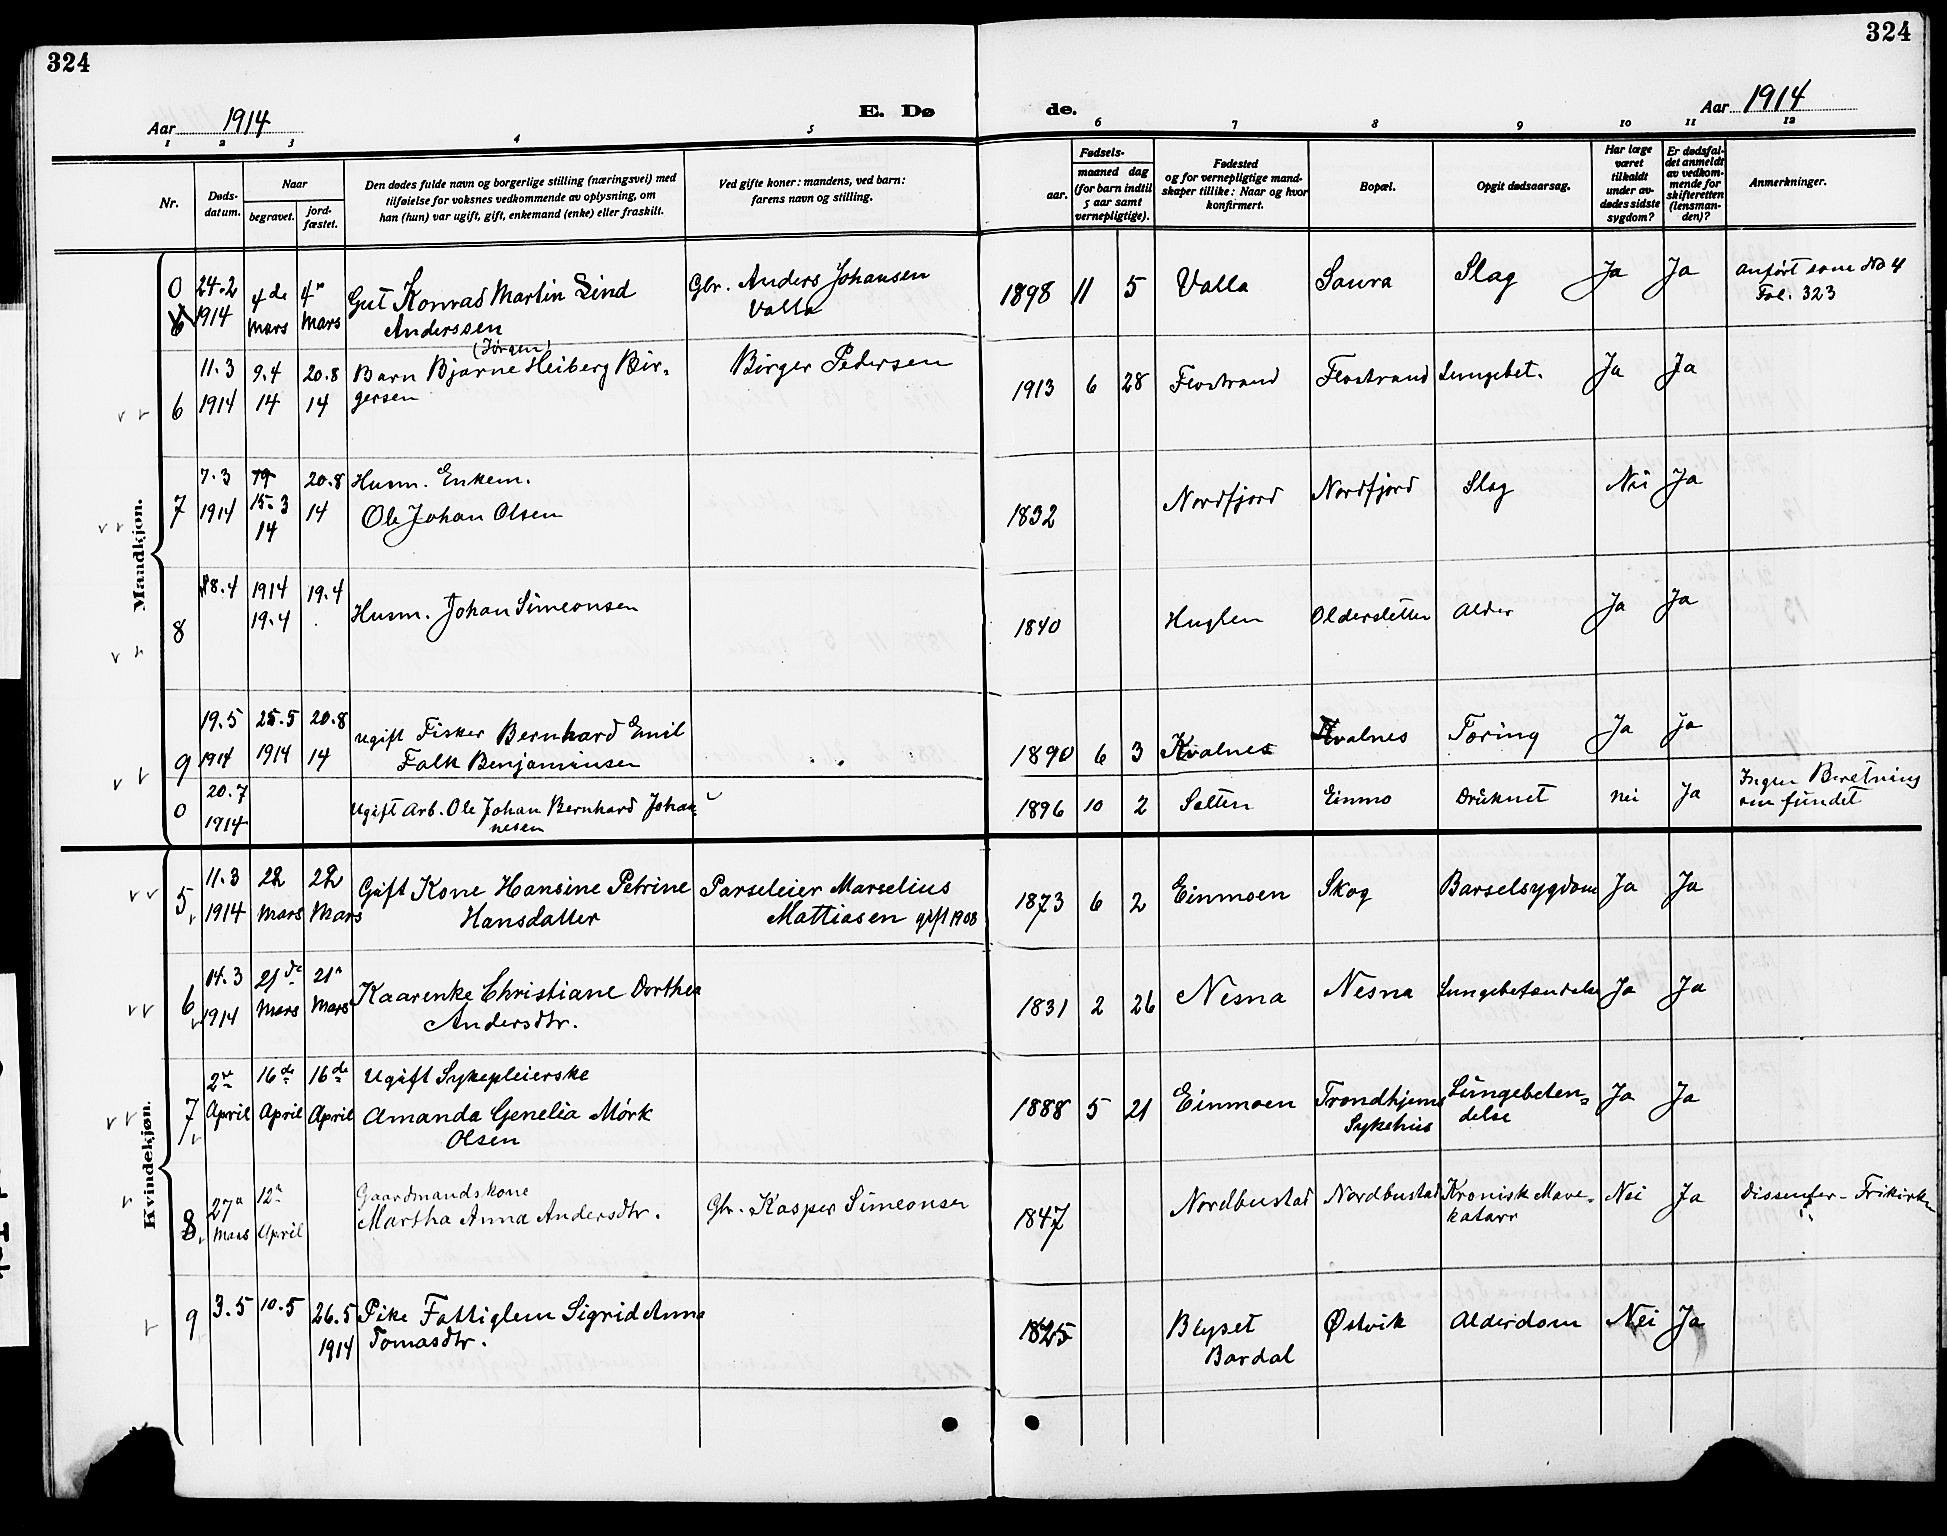 324
324
Aar 1914
E. Dø
de.
Aar 1914
1 2 3 4 5 6 7 8 9 10 11 12
Nr.
Døds-
datum.
Naar
begravet.
jord-
fæstet.
Den dødes fulde navn og borgerlige stilling (næringsvei) med
tilføielse for voksnes vedkommende av oplysning, om
han (hun) var ugift, gift, enkemand (enke) eller fraskilt.
Ved gifte koner: mandens, ved barn:
farens navn og stilling.
Fødsels-
aar.
maaned dag
(for barn indtil
5 aar samt
vernepligtige).
Fødested
og for vernepligtige mand-
skaper tillike: Naar og hvor
konfirmert.
Bopæl.
Opgit dødsaarsag.
Har læge
været
tilkaldt
under av-
dødes sidste
sygdom?
Er dødsfal-
det anmeldt
av vedkom-
mende for
skifteretten
(lensman-
den)?
Anmerkninger.
Mandkjøn.
0 24-2 4de 4de Gut Konrad Martin Lind Gbr. Anders Johansen 1898 11 5 Valla Saura Slag Ja Ja anført som No 4
6 1914 Mars Mars Anderssen Valla Fol. 323
(Jørgen)
11.3 9.4 20.8 Barn Bjarne Heiberg Bir- Birger Pedersen 1913 6 28 Flostrand Flostrand Lungebet. Ja Ja
6 1914 14 14 gersen
7.3 20.8 Husm. Enkem.
7 1914 15-3 14 Ole Johan Olsen 1832 Nordfjord Nordfjord Slag Nei Ja
14
8.4 1914 19.4
8 19.4 Husm. Johan Simeonsen 1840 Huglen Oldersletten Alder Ja Ja
19.5 25.5 20.8 ugift Fisker Bernhard Emil
9 1914 1914 14 Falk Benjaminsen 1890 6 3 Kvalnes Kvalnes Tæring Ja Ja
20.7
0 1914 Ugift Arb. Ole Johan Bernhard Johan- 1896 10 2 Salten Einmo Druknet nei Ja Ingen Beretning
nesen om fundet
Kvindekjøn.
11.3 22 22 Gift Kone Hansine Petrine Parseleier Marselius
5 1914 Mars Mars Hansdatter Mattiasen gift 1908 1873 6 2 Einmoen Skog Barselsygdom Ja Ja
14.3 21de 21de
6 1914 Mars Mars Kaarenke Christiane Dorthea 1831 2 26 Nesna Nesna Lungebetændelse Ja Ja
Andersdtr.
2de 16de 16de Ugift Sykepleierske
7 April April April Amanda Genelia Mørk 1888 5 21 Einmoen Trondhjems Lungebeten- Ja Ja
Olsen Sykehus delse
27de 12te Gaardmandskone
8 Mars April Martha Anna Andersdtr. Gbr. Kasper Simeonsen 1847 Nordbustad Nordbustad Kronisk Mave- Nei Ja Dissenter - Frikirken
katarr
9 3.5 10.5 26.5 Pike Fattiglem Sigrid Anna 1825 Blyset Østvik Alderdom Nei Ja
1914 Tomasdtr. Bardal